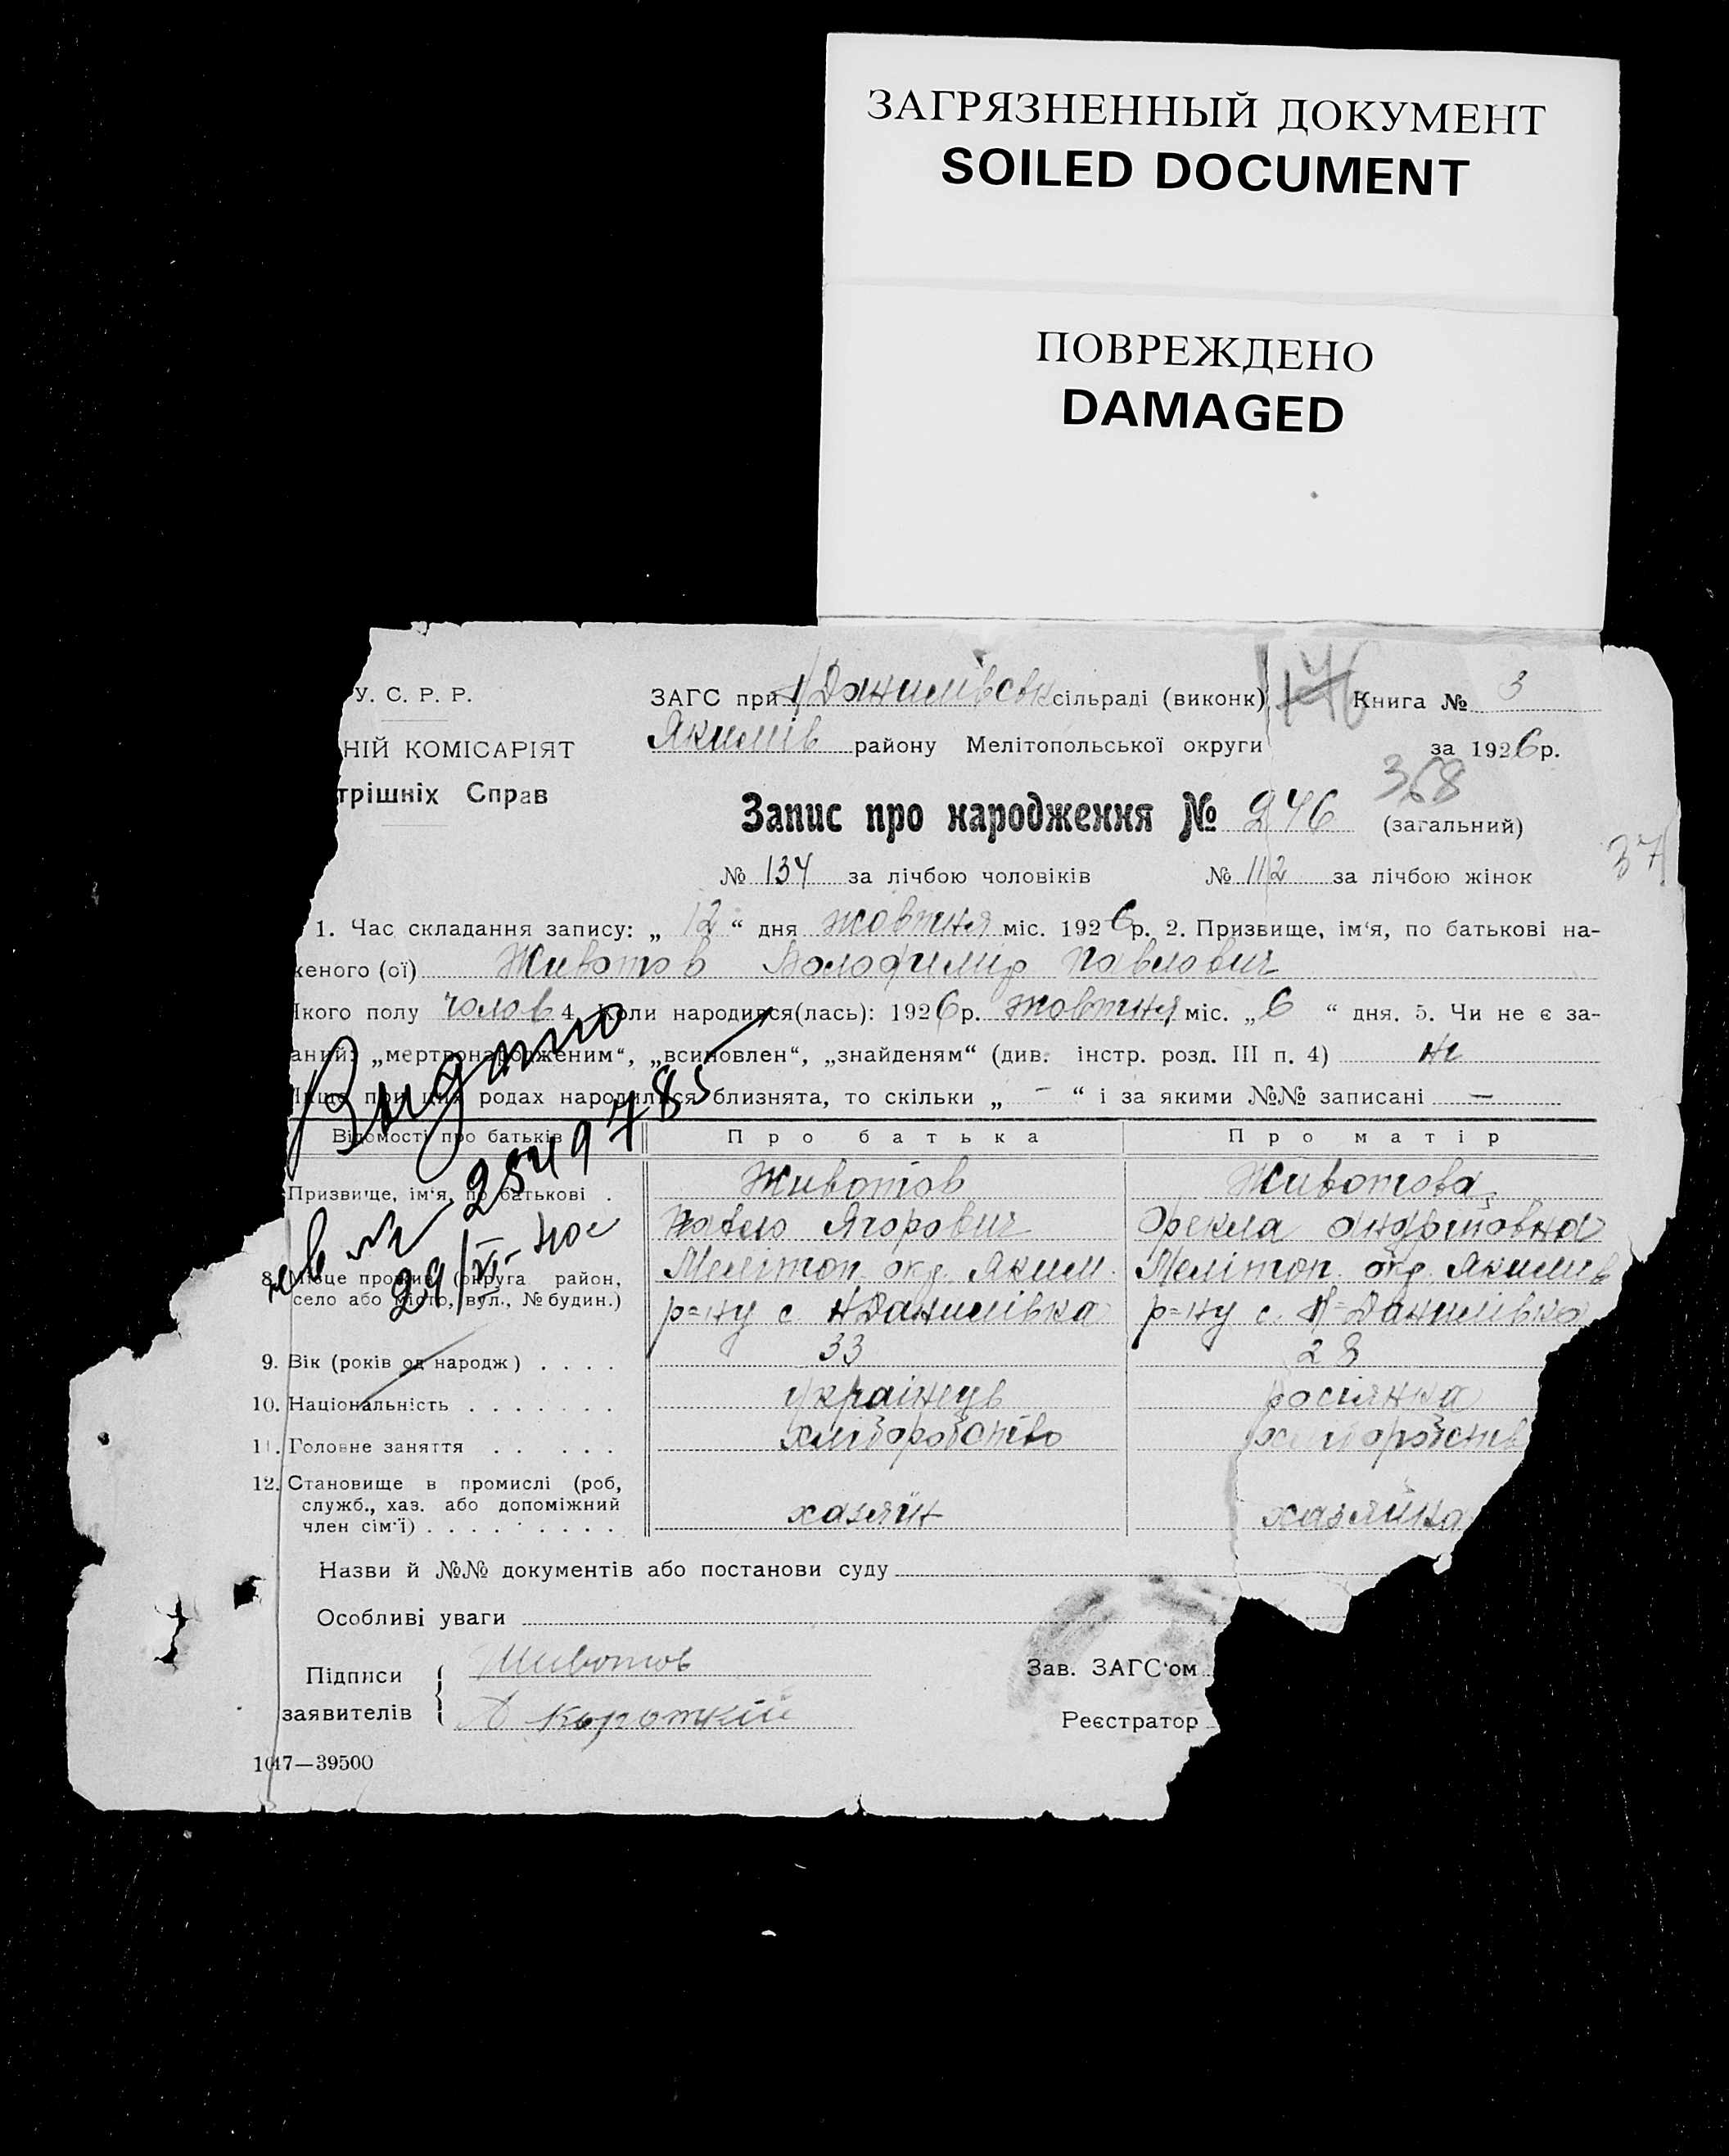 ЗАГРЯЗНЕННЫЙ ДОКУМЕНТ
SOILED DOCUMENT
ПОВРЕЖДЕНО
DAMAGED
У. С. Р. Р.
НІЙ КОМІСАРІЯТ
трішніх Справ
ЗАГС при Н Данилівськ сільраді (виконк)
146
Книга № 3
Якимів району Мелітопольської округи
за 1926 р.
368
Запис про народження № 246 (загальний)
37
№ 134 за лічбою чоловіків № 112 за лічбою жінок
1. Час складання запису: „ 12 “ дня жовтня міс. 1926 р. 2. Призвище, ім‘я, по батькові на-
женого (ої) Животов Володимір Павлович
кого полу чолов 4. Коли народився(лась): 1926 р. жовтня міс. „ 6 “ дня. 5. Чи не є за-
аний: „мертвонародженим“, „всиновлен“, „знайденям“ (див. інстр. розд. III п. 4) не
Якщо при цих родах народилися близнята, то скільки „ – “ і за якими №№ записані —
Видано
Відомості про батьків Про батька Про матір
Призвище, ім‘я, по батькові . Животов Животова
Павло Ягорович Фекла Андріповна
8. Місце прожив. (округа район, село або місто, вул., № будин.) Мелітоп. окр. Яким. Мелітоп. окр. Якимів
р=ну с. Н Данилівка р=ну с. Н=Данилівка
29/XI-40
9. Вік (років од народж) . . . . 33 28
10. Національність . . . . . . . українець росіянка
11. Головне заняття . . . . . хліборобство хліборобств
12. Становище в промислі (роб,
служб., хаз. або допоміжний
член сім‘ї) . . . . . . . . . хазяїн хазяйка
Назви й №№ документів або постанови суду
Особливі уваги
Підписи заявителів { Животов
Короткій
Зав. ЗАГС‘ом
Реєстратор
1047—39500